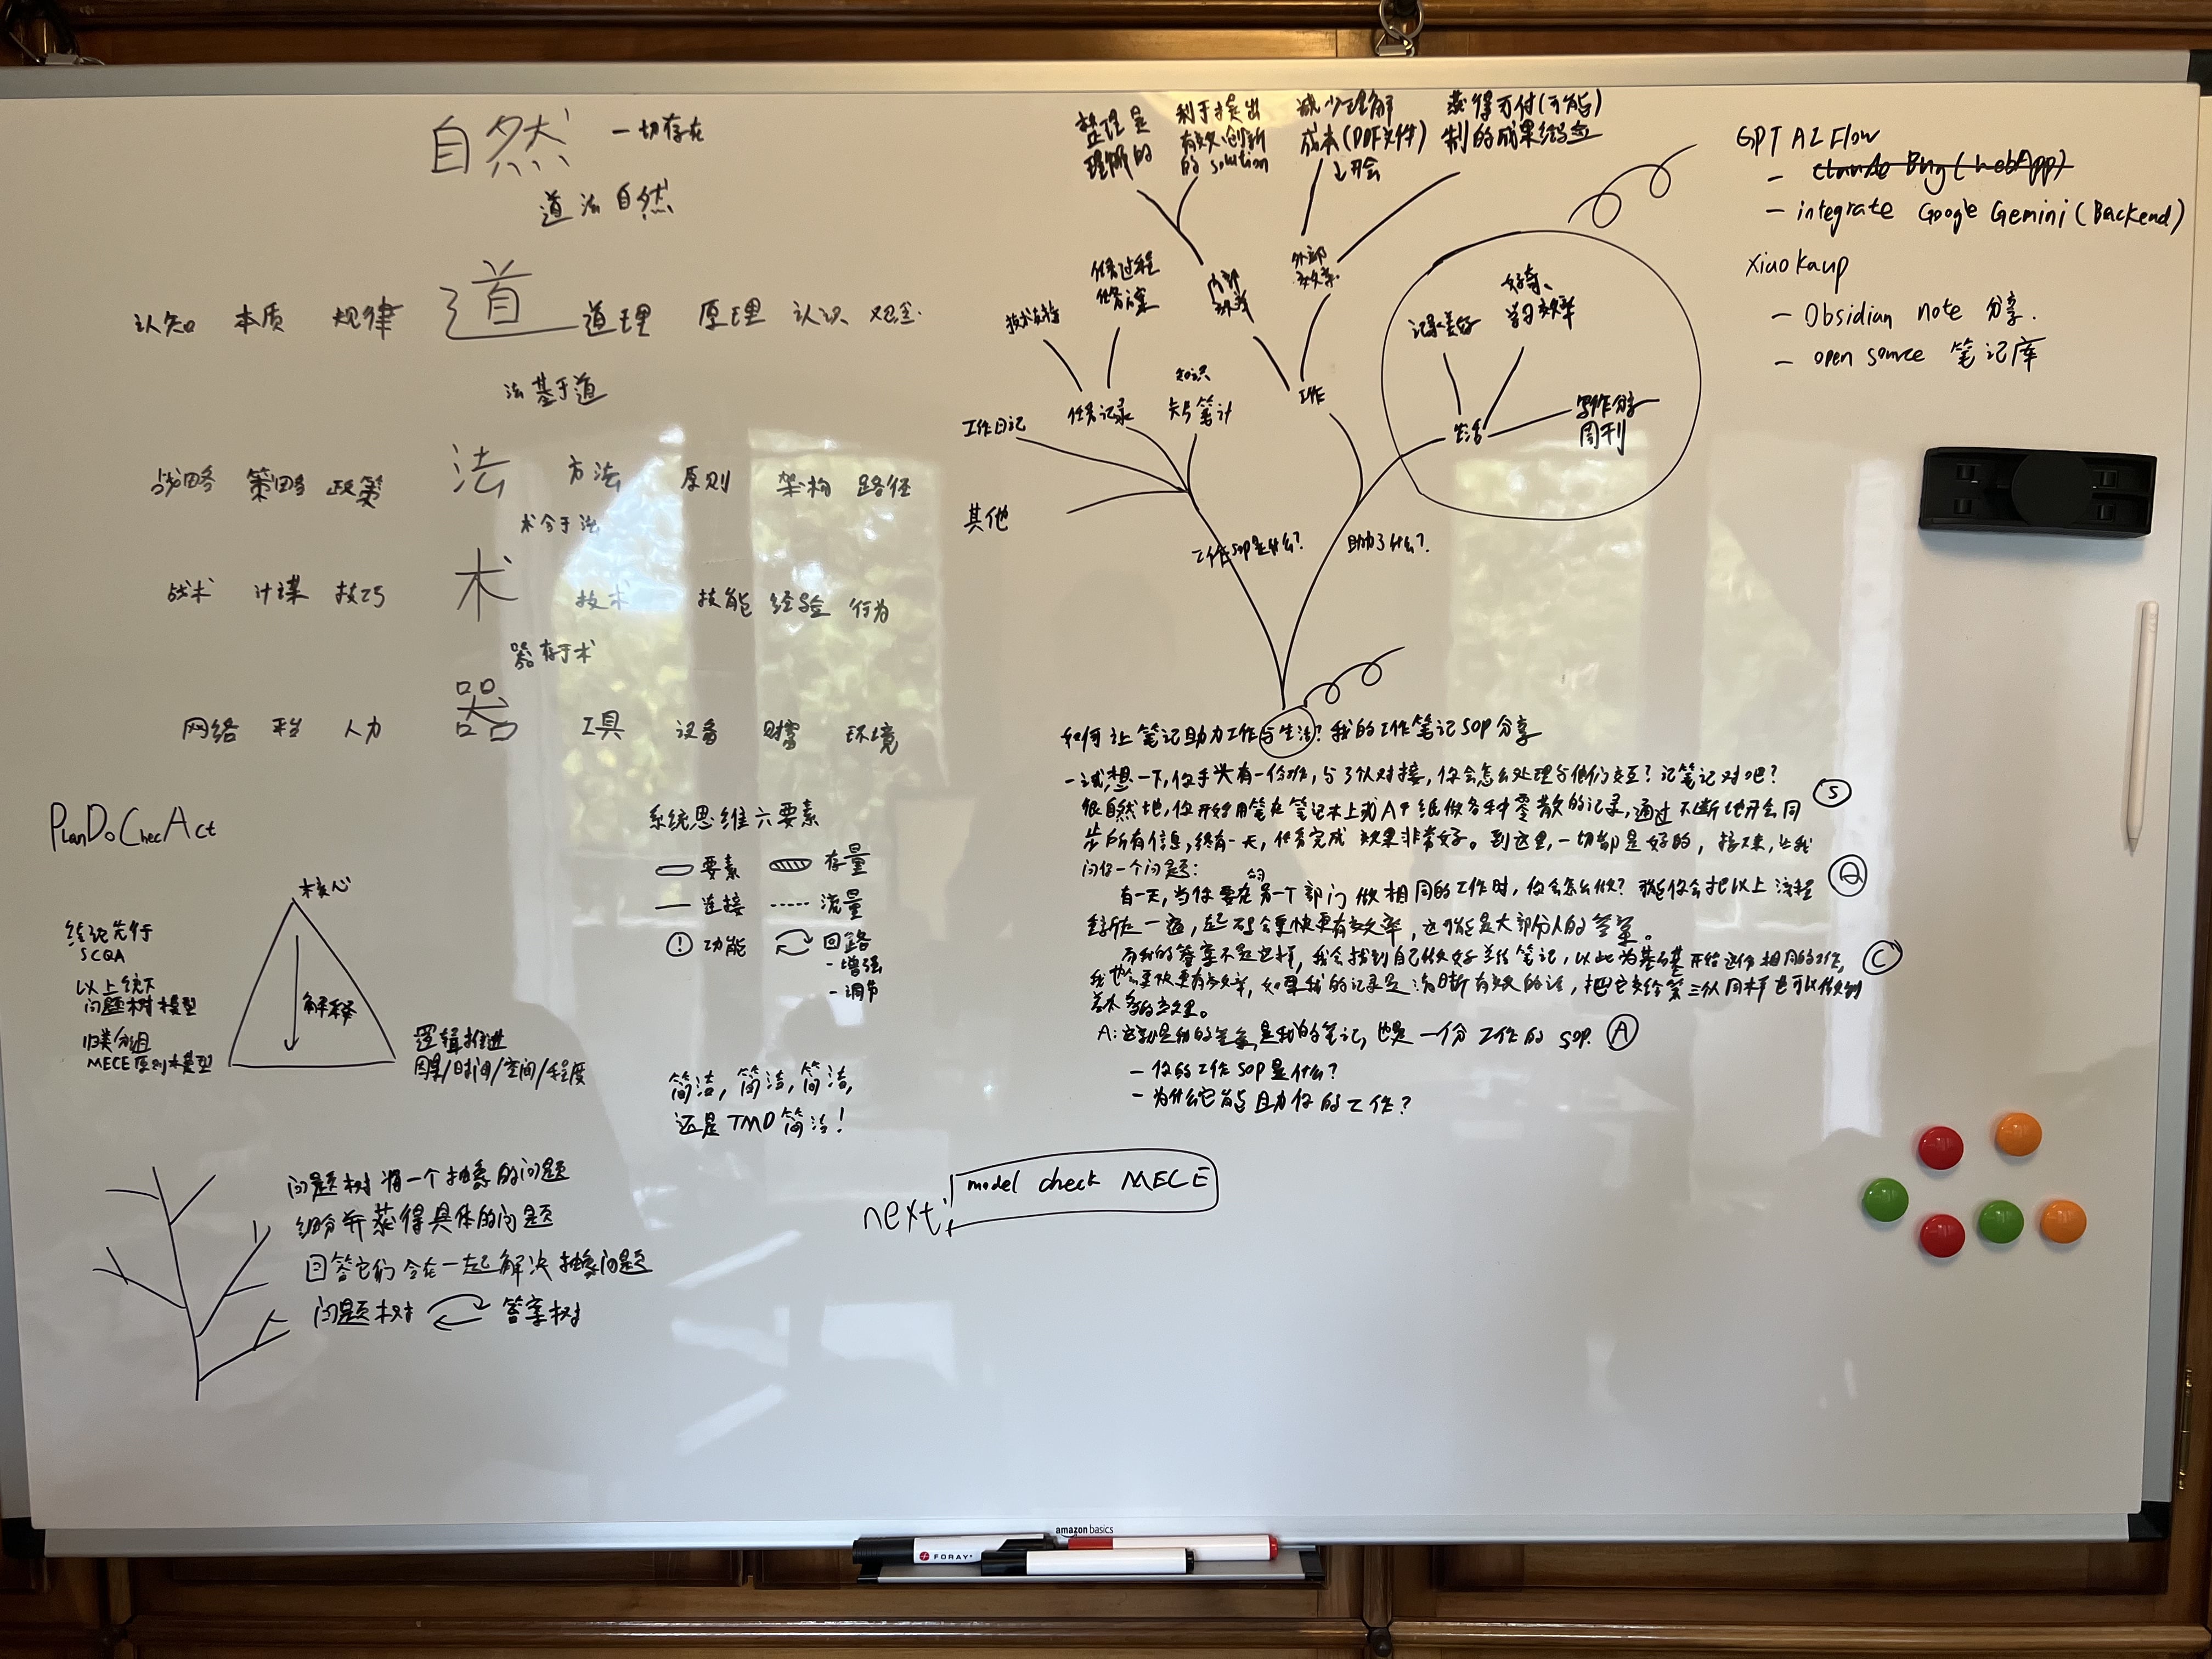 自然 一切存在
道法自然
认知 本质 规律 道 道理 原理 认识 观念
法基于道
战略 策略 政策 法 方法 原则 架构 路径
术合于法
战术 计谋 技巧 术 技术 技能 经验 行为
器存于术
网络 人力 器 工具 设备 财富 环境
PlanDoChecAct
核心
结论先行
SCQA
以上统下
问题树模型
归类分组
MECE原则模型
解释
逻辑推进
因果/时间/空间/程度
系统思维六要素
要素 存量
连接 流量
功能 回路
- 增强
- 调节
简洁,简洁,简洁,
还是TMD简洁!
问题树 将一个抽象的问题
细分并获得具体的问题
回答它们 合在一起解决抽象问题
问题树 答案树
next:
model check MECE
整理是
理解的
利于提出
有效、创新
的 solution
减少理解
成本(PDF文件)
↓开会
获得可付(可能)
制的成果经验
任务过程
任务方案
内部
效率
外部
效率
技术文档
工作日记
任务记录
知识
笔记
工作
其他
工作SOP是什么?
助力了什么?
好奇、
学习效率
记录美好
生活
写作分享
周刊
GPT AI Flow
- claude Bug (webApp)
- integrate Google Gemini (Backend)
xiaokaup
- Obsidian note 分享.
- open source 笔记库
如何让笔记助力工作与生活?我的工作笔记SOP分享
- 试想一下,你手头有一份,与3队对接,你会怎么处理与他们交互?记笔记对吧?
很自然地,你开始用笔在笔记本上或A4纸做各种零散的记录,通过不断地开会同 S
步所有信息,终有一天,任务完成 效果非常好。到这里,一切都是好的,接下来,让我
问你一个问题:
有一天,当你要在另一个部门做相同的工作时,你会怎么做?可能你会把以上流程 Q
重新走一遍,起码会更快更有效率,这可能是大部分人的答案。
而我的答案不是这样,我会找到自己做好的笔记,以此为基础开始这份相同的工作, C
我也会更快更有效率,如果我的记录是清晰有效的话,把它交给第三队同样也可以做到
差不多的效果。
A: 这就是我的答案,是我的笔记,也是一份工作的SOP. A
- 你的工作SOP是什么?
- 为什么它能助力你的工作?
amazon basics
FORAY